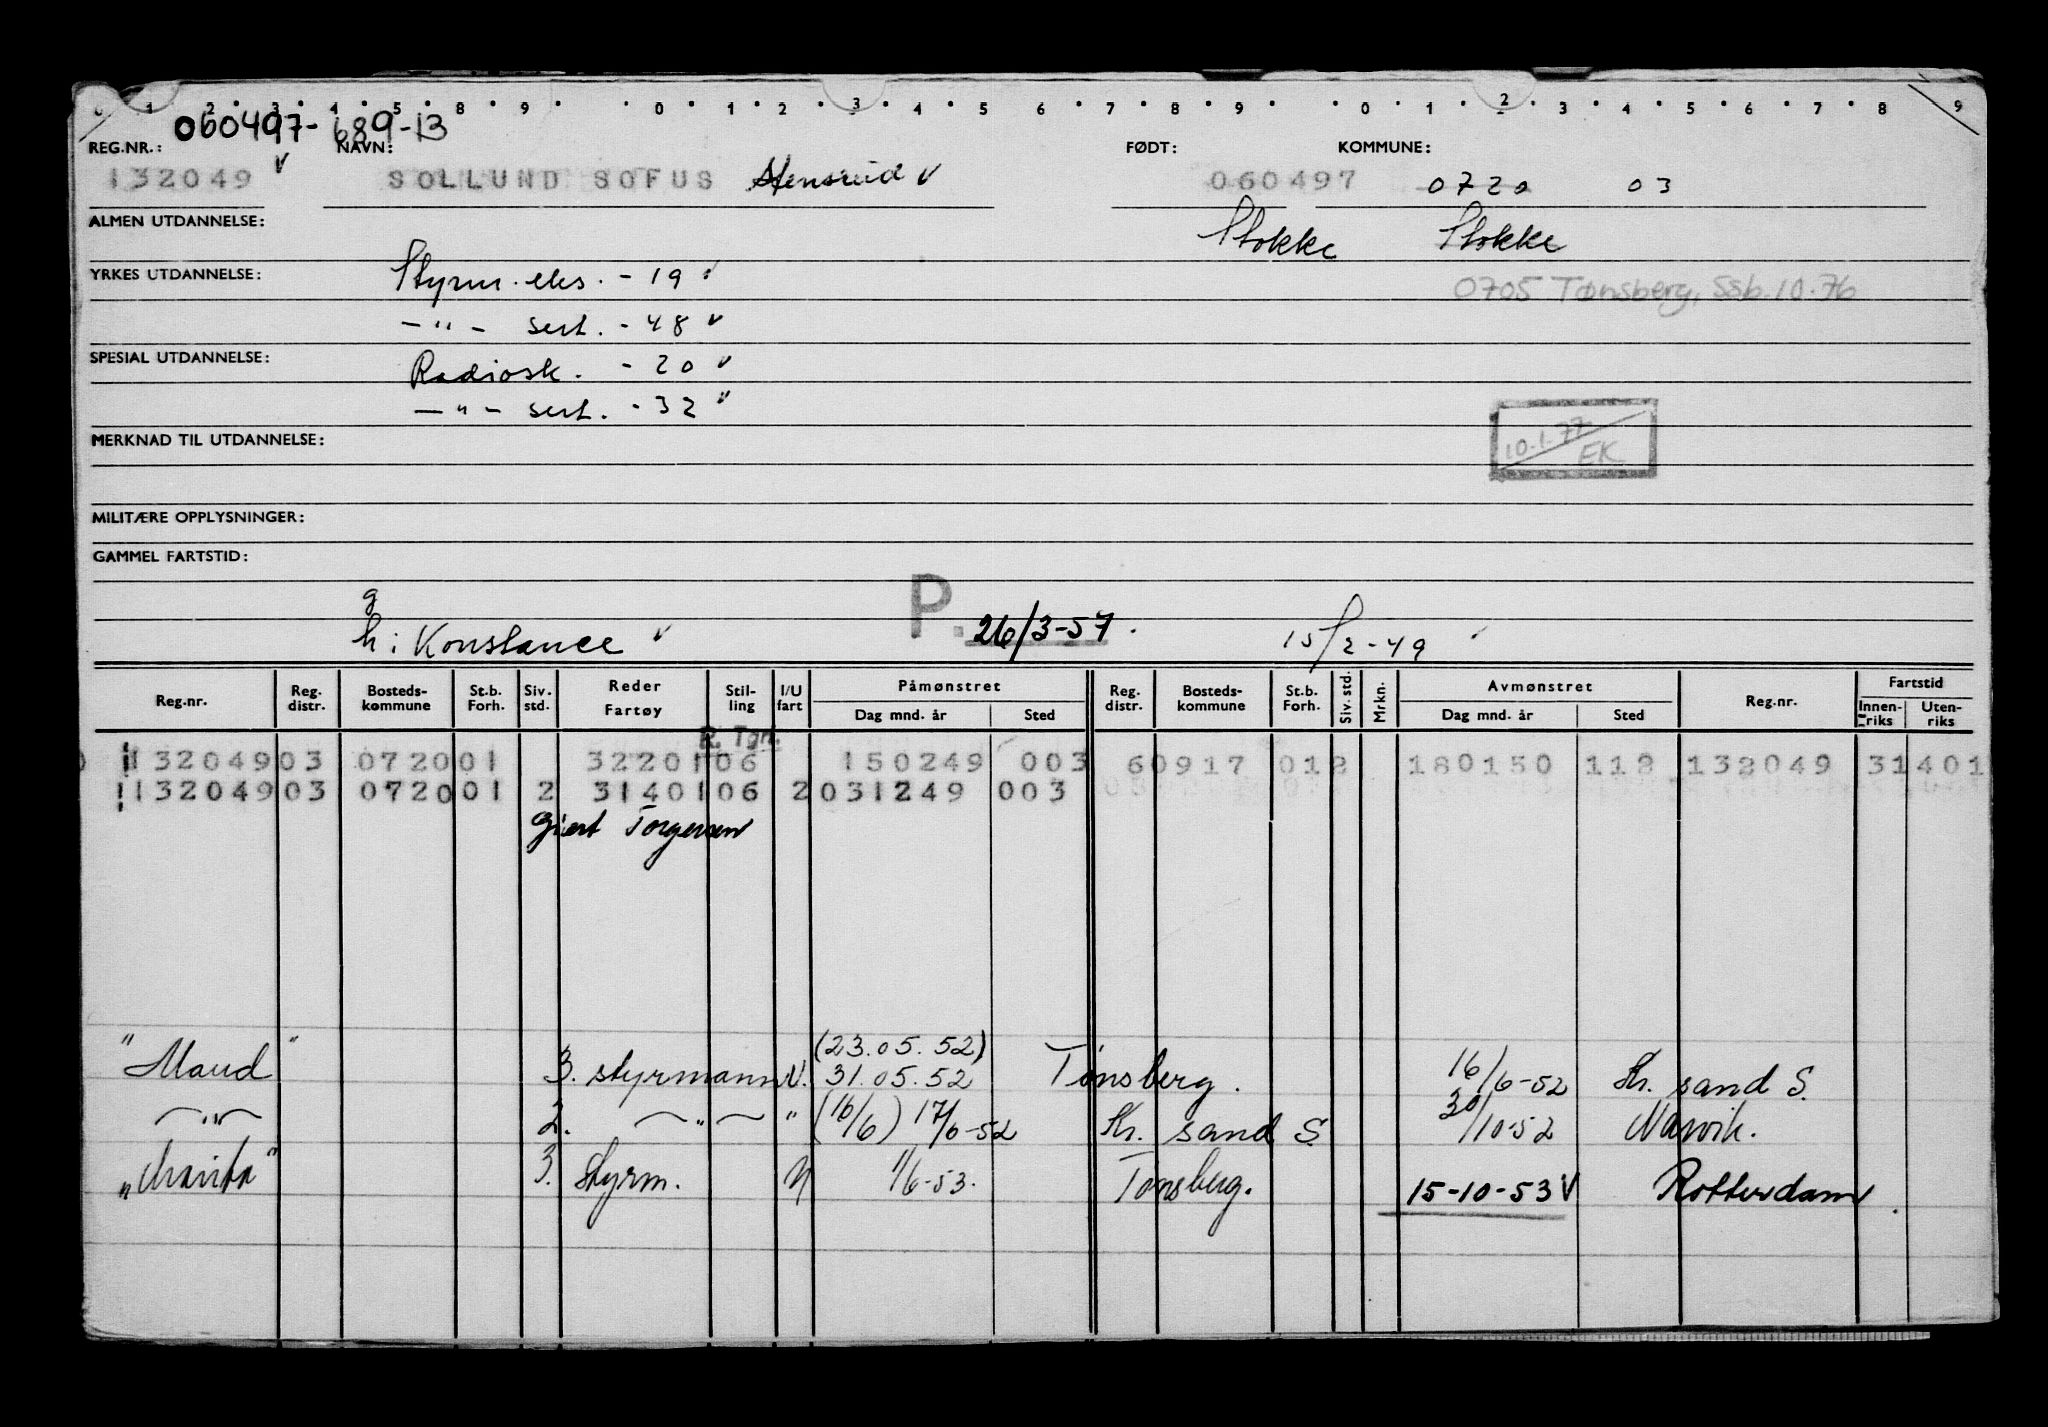 0 1 2 3 4 5 8 9 0 1 2 3 4 5 6 7 8 9 0 1 2 3 4 5 6 7 8 9
060497-689-13
REG.NR.: NAVN: FØDT: KOMMUNE:
132049 SOLLUND SOFUS Stensrud 060497 0720 03
ALMEN UTDANNELSE: Stokke Stokke
YRKES UTDANNELSE: Styrm. eks. - 19 0705 Tønsberg, Ssb. 10.76
-"- sert. - 48
SPESIAL UTDANNELSE: Radiosk. - 20
-"- sert. - 32
MERKNAD TIL UTDANNELSE: 10.1.77 EK
MILITÆRE OPPLYSNINGER:
GAMMEL FARTSTID:
g
h: Konstance P. 26/3-57. 15/2-49
Reg.nr. Reg. distr. Bosteds-kommune St.b. Forh. Siv. std. Reder Fartøy Stil-ling I/U fart Påmønstret Dag mnd. år Sted Reg. distr. Bosteds-kommune St.b. Forh. Siv. std. Mrkn. Avmønstret Dag mnd. år Sted Reg.nr. Fartstid Innen-riks Uten-riks
R. Tgr.
132049 03 0720 01 32201 06 150249 003 60917 012 180150 112 132049 31401
132049 03 0720 01 2 31401 06 2 031249 003
Giert Torgersen
(23.05.52)
"Maud" 3. styrmann U. 31.05.52 Tønsberg. 16/6-52 Kr. sand S.
-"- 2. -"- " (16/6) 17/6-52 Kr. sand S 30/10-52 Narvik.
"Marita" 3. styrm. U 1/6-53. Tønsberg. 15-10-53 Rotterdam.